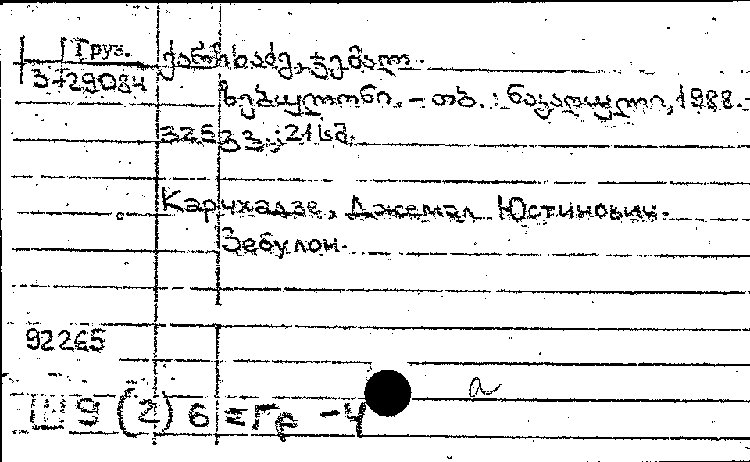 Груз.
3-729084
ქარჩხაძე, ჯემალ.
ზებულონი. – თბ. : ნაკადული, 1988. –
325 გვ. ; 21 სმ.
Карчхадзе, Джемал Юстинович.
Зебулон.
92265
Ш 9 (2) 6 = Гр - 4
a